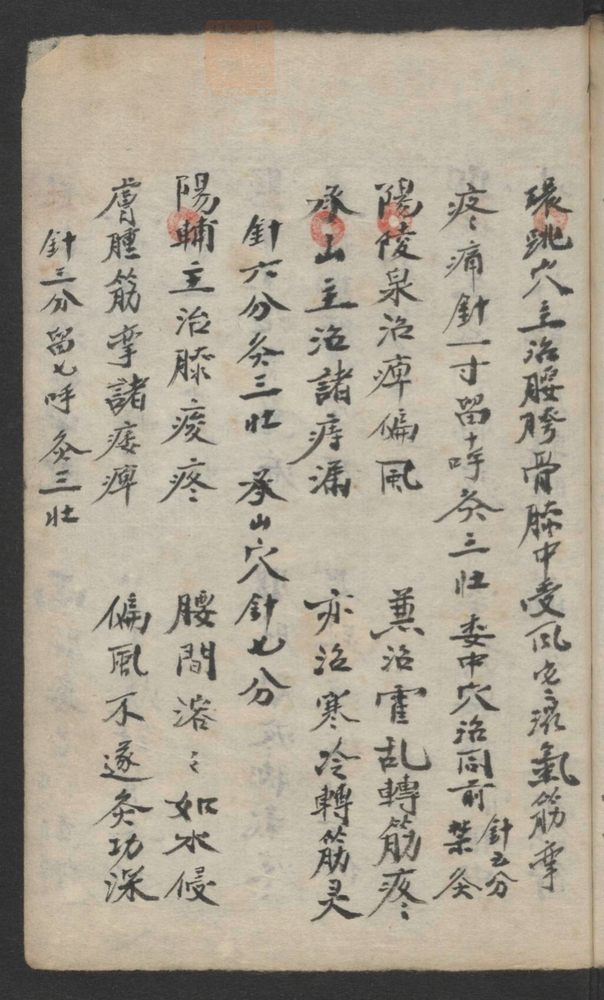 環跳穴主治腰胯骨膝中受风寒濕氣筋攣
疼痛針一寸留十呼灸三壮 委中穴治同前 針五分 禁灸
陽陵泉治痺偏風 兼治霍乱轉筋疼
承山主治諸痔漏 亦治寒冷轉筋灵
針六分灸三壮 承山穴針七分
陽輔主治膝痠疼 腰間溶々如水侵
膚腫筋攣諸痿痺 偏風不遂灸功深
針三分留七呼灸三壮